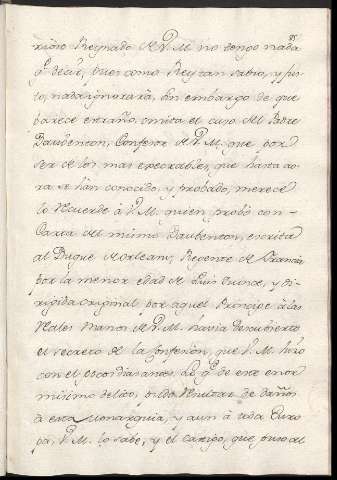 95
rioso Reynado de V. M. no tengo nada
q.e decir, pues como Rey tan sabio, y jus-
to, nada ignorará, sin embargo de que
parece extraño, omita el caso del Padre
Daubenton, Confesor de V. M. que por
ser de los mas execrables, que hasta ao-
ra se han conocido, y probado, merece
lo recuerde à V. M. quien probó con
Carta del mismo Daubenton, escrita
al Duque de Orleans, Regente de Francia
por la menor edad de Luis quince, y di-
rigida original por aquel Principe à las
Reales Manos de V. M. havia descubierto
el secreto de la Confesion, que V. M. hizo
con el escondias antes, lo q.e de este enor-
misimo delito, pudo resultar de daños
à esta Monarquia, y aun à toda Euro-
pa, V. M. lo sabe, y el castigo, que puso al